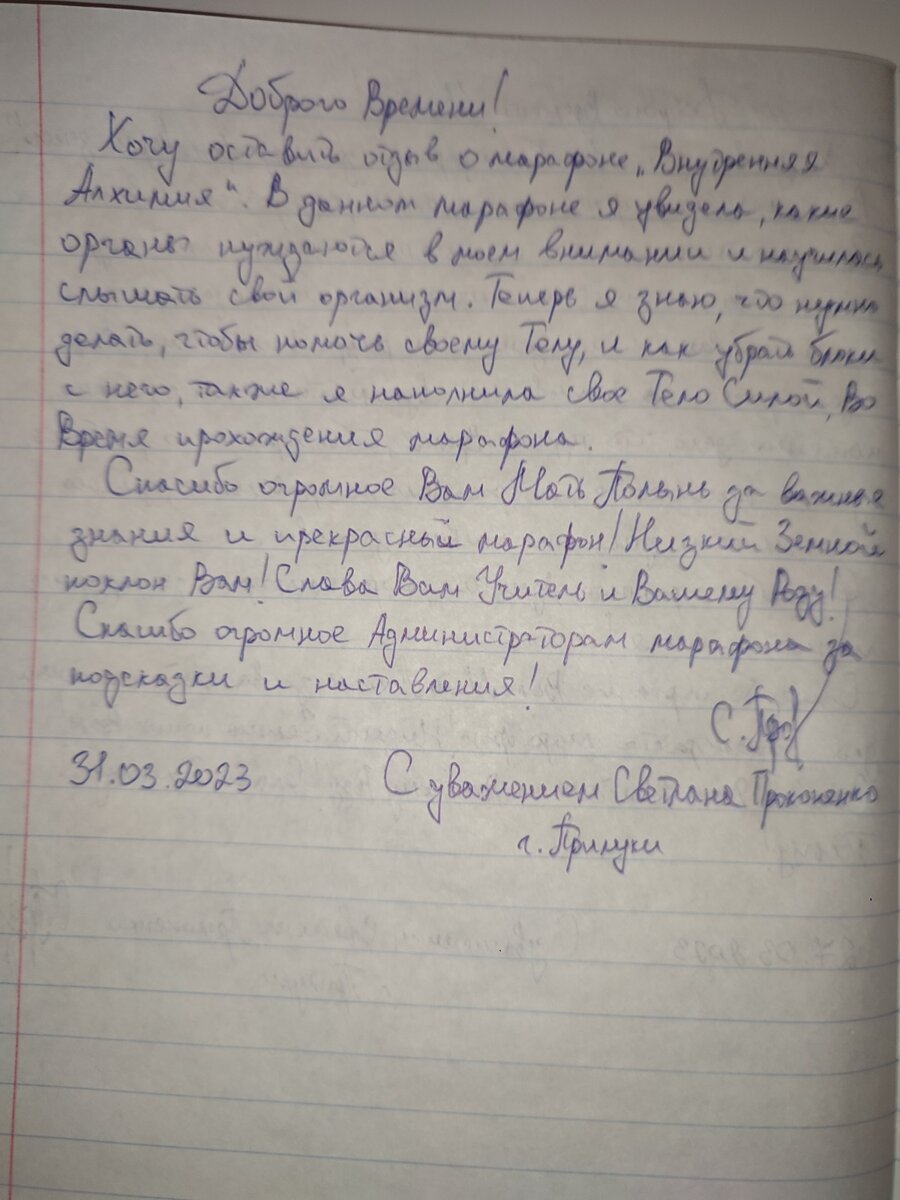 Доброго Времени!
Хочу оставить отзыв о марафоне „Внутренняя
Алхимия“. В данном марафоне я увидела, какие
органы нуждаются в моем внимании и научилась
слышать свой организм. Теперь я знаю, что нужно
делать, чтобы помочь своему Телу, и как убрать блоки
с него, также я наполнила свое Тело Силой, Во
Время прохождения марафона.
Спасибо огромное Вам Мать Полынь за важные
знания и прекрасный марафон! Низкий Земной
поклон Вам! Слава Вам Учитель и Вашему Роду!
Спасибо огромное Администраторам марафона за
подсказки и наставления!
31.03.2023 С уважением Светлана Прокопенко
г. Прилуки